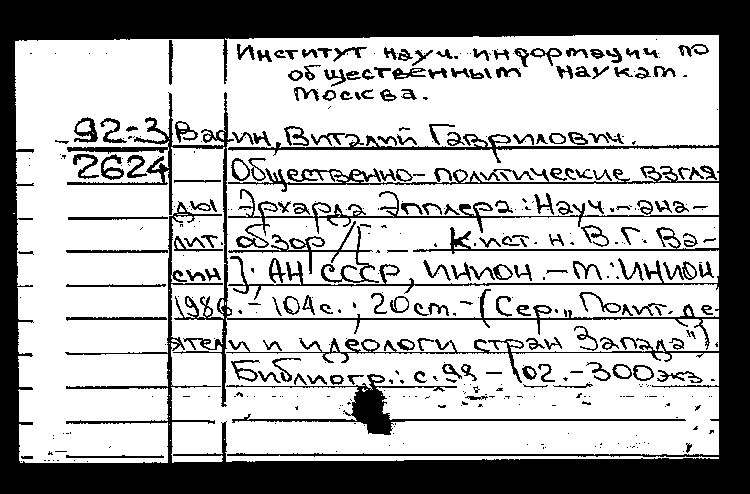 Институт науч. информации по
общественным наукам.
Москва.
92-3 Васин, Виталий Гаврилович.
2624 Общественно-политические взгля-
ды Эрхарда Эпплера : Науч.-ана-
лит. обзор / [ . К. ист. н. В. Г. Ва-
син]; АН СССР, ИНИОН. - М.: ИНИОН,
1986. - 104 с. ; 20 см. - (Сер. „Полит. де-
ятели и идеологи стран Запада").
Библиогр.: с. 98 - 102. - 300 экз.